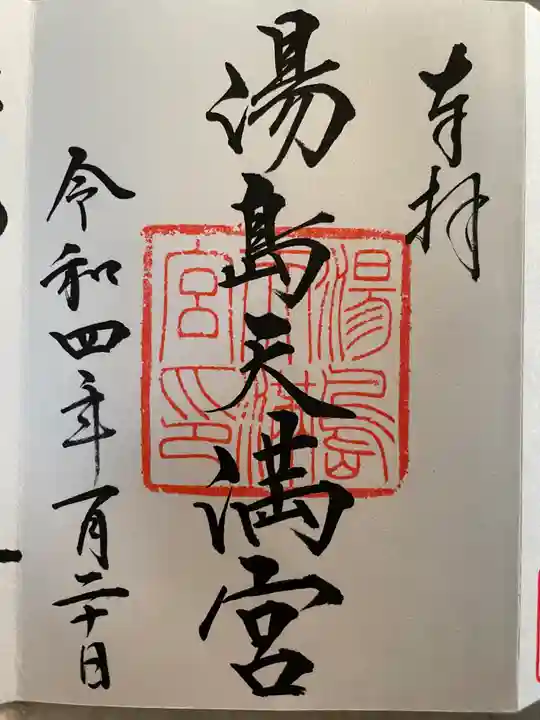 奉拝
湯島天満宮
湯島天満宮印
令和四年一月二十日